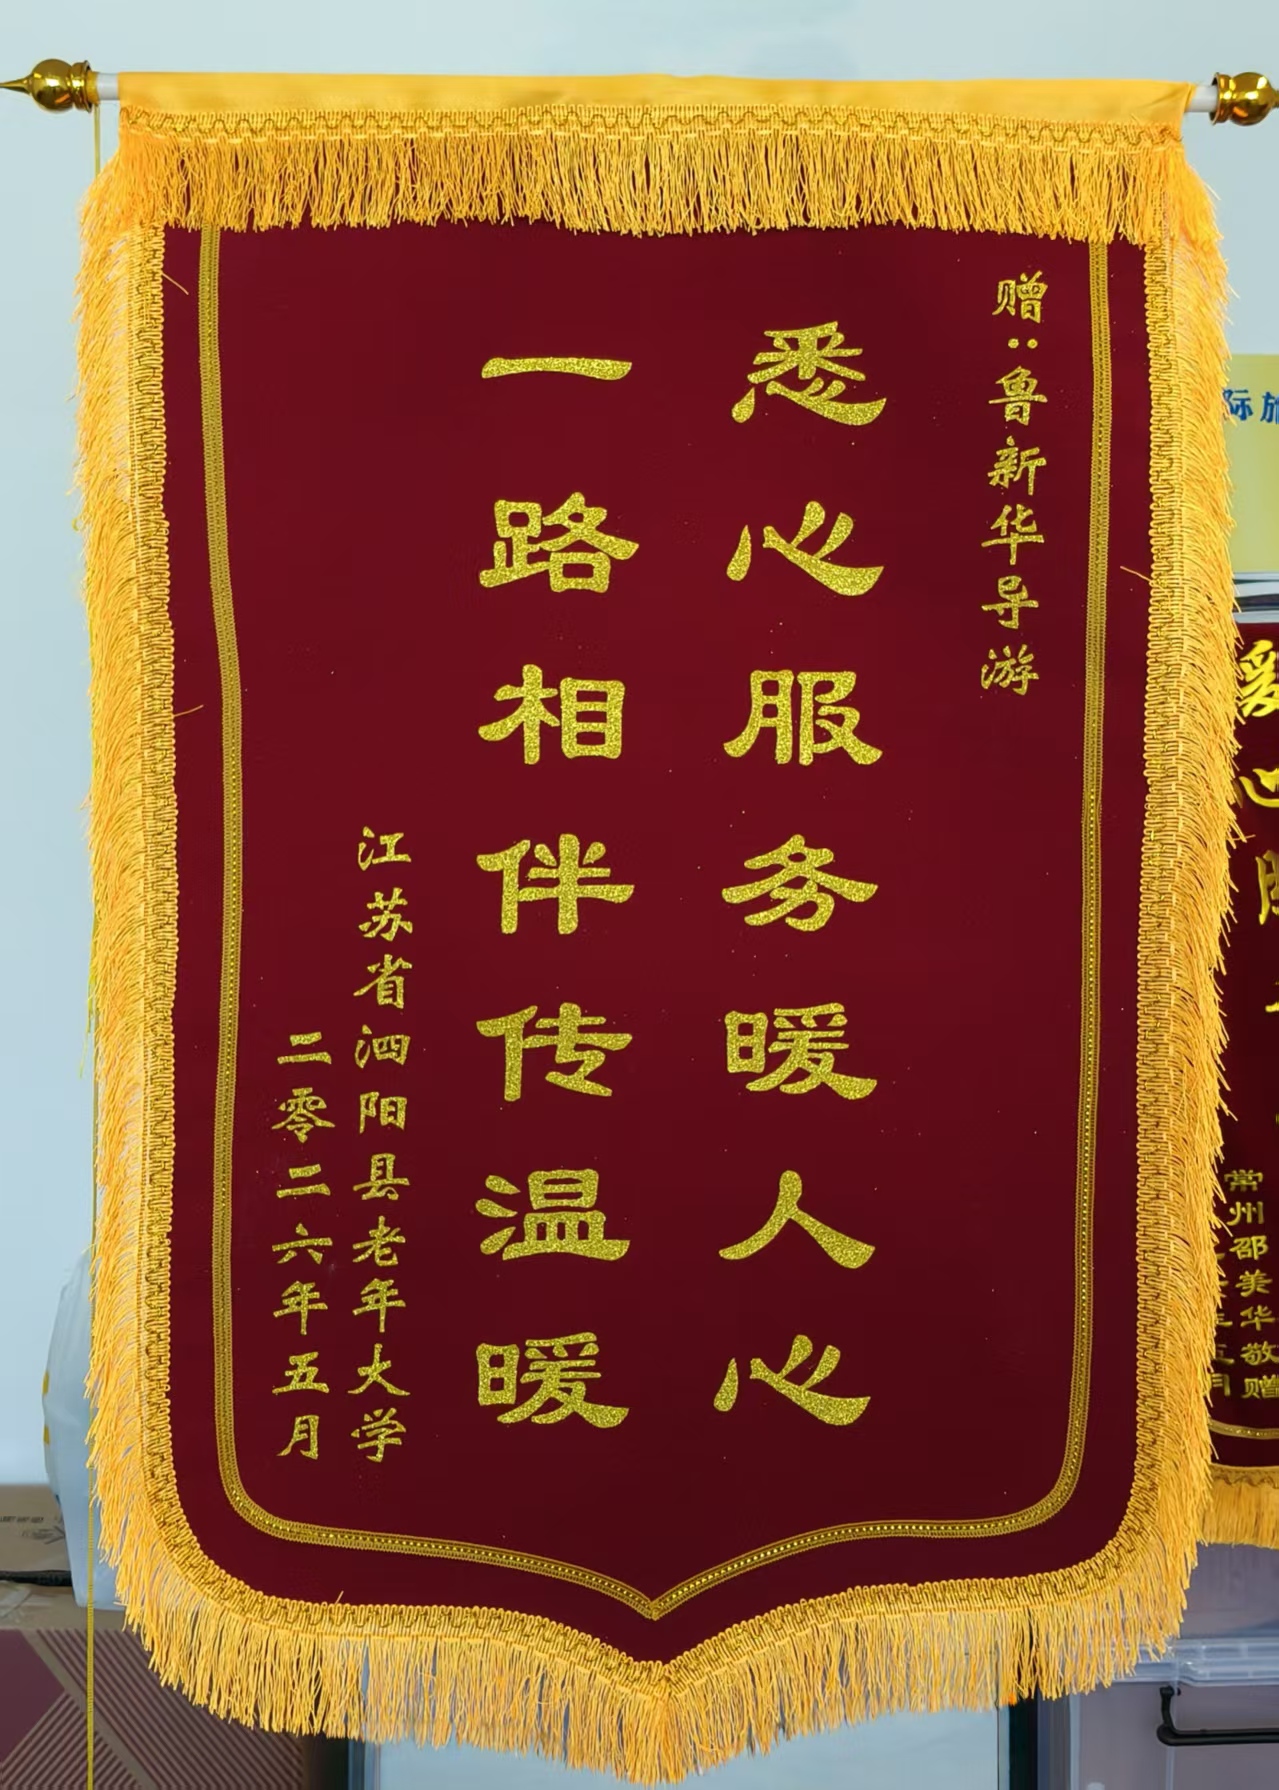 赠:鲁新华导游
悉心服务暖人心
一路相伴传温暖
江苏省泗阳县老年大学
二零二六年五月
际旅
常州邵美华敬赠